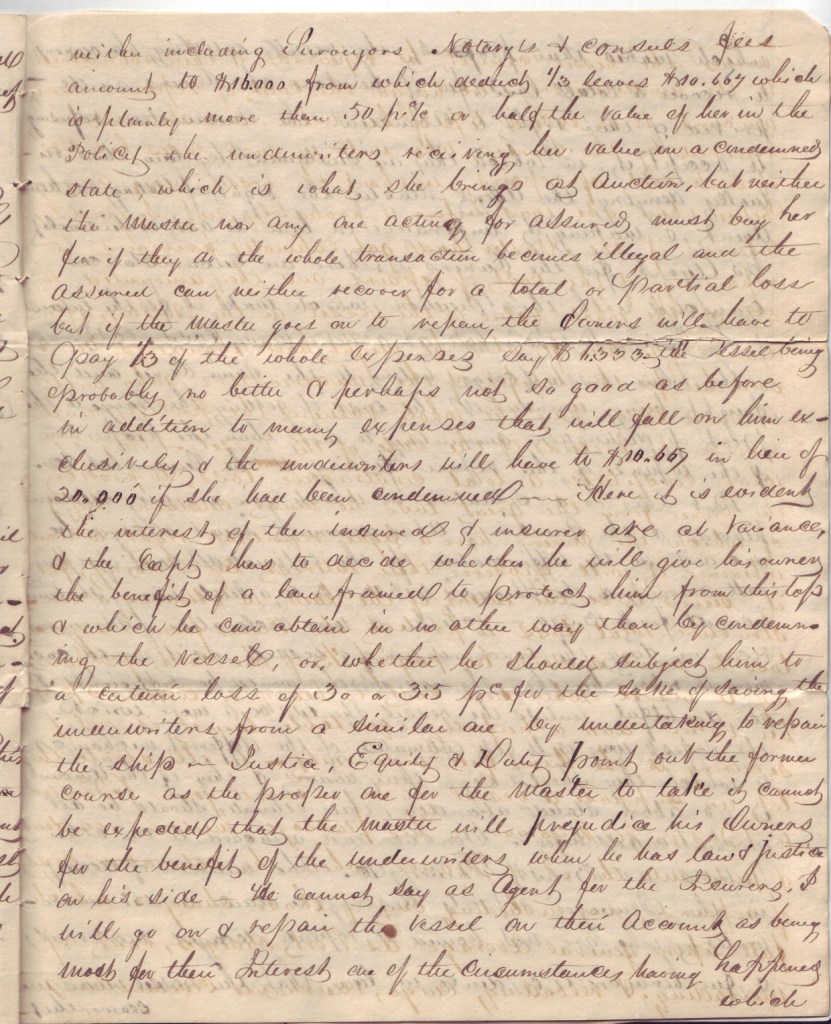 neither including Surveyors Notarys & consuls fees
amount to $16.000 from which deduct 1/3 leaves $10.667 which
is plainly more than 50 p% or half the value of her in the
Policy the underwriters receiving her value in a condemned
state, which is what she brings at Auction, but neither
the Master nor any one acting for assured must buy her
for if they do the whole transaction becomes illegal and the
assured can neither recover for a total or Partial loss
but if the Master goes on to repair, the Owners will have to
pay 1/3 of the whole expenses say the Vessel being
probably no better & perhaps not so good as before
in addition to many expenses that will fall on him ex-
clusively & the underwriters will have to $10.667 in lieu of
20.000 if she had been condemned — Here it is evident
the interest of the insured & insurer are at variance,
& the Capt has to decide whether he will give his owner
the benefit of a law framed to protect him from this
& which he can obtain in no other way than by condemn-
ing the vessel, or whether he should subject him to
a certain loss of 30 or 35 pc for the sake of saving the
underwriters from a similar one by undertaking to repair
the ship — Justice, Equity & Duty point out the former
course as the proper one for the Master to take it cannot
be expected that the master will prejudice his Owners
for the benefit of the underwriters when he has law & Justice
on his side — He cannot say as Agent for the Insurers, I
will go on & repair the vessel on their Account as being
most for their Interest one of the circumstances having happened
which